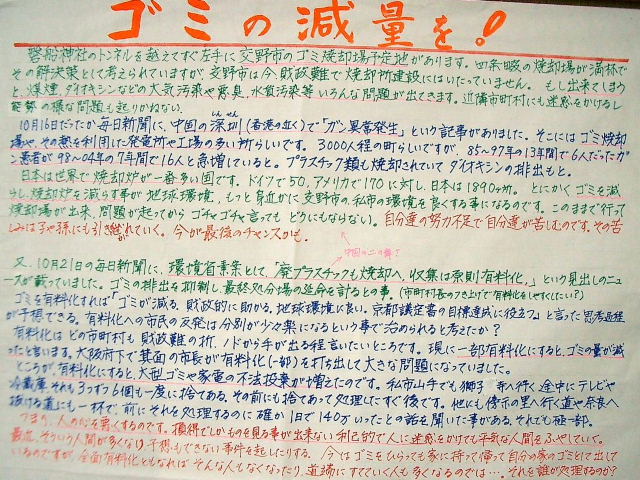 ゴミの減量を!
磐船神社のトンネルを越えてすぐ左手に交野市のゴミ焼却場予定地があります。四条畷の焼却場が満杯で
その解決策として考えられていますが、交野市は今、財政難で焼却所建設にはいたっていません。もし出来てしまう
と、煤煙、ダイオキシンなどの大気汚染や悪臭、水質汚染等いろんな問題が出てきます。近隣市町村にも迷惑をかけるし
能勢の様な問題も起りかねない。
10月16日だったか毎日新聞に、中国の深圳(香港の近く)で「ガン異常発生」という記事がありました。そこにはゴミ焼却
場や、その熱を利用した発電所や工場の多い所らしいです。3000人程の町らしいですが、85~97年の13年間で6人だったガン
患者が98~04年の7年間で16人と急増していると。プラスチック類も焼却されていてダイオキシンの排出もと。
日本は世界で焼却炉が一番多い国です。ドイツで50、アメリカで170に対し、日本は1890ヶ所。とにかくゴミを減
らし、焼却炉を減らす事が地球環境、もっと身近かに交野市の私市の環境を良くする事になるのです。このままで行って
焼却場が出来、問題が起ってからゴチャゴチャ言ってもどうにもならない。自分達の努力不足で自分達が苦しむのです。その苦
しみは子や孫にも引き継がれていく。今が最後のチャンスかも。
中国の二の舞?
又、10月21日の毎日新聞に、環境省素案として、「廃プラスチックも焼却へ、収集は原則有料化、」という見出しのニュ
ースが載っていました。ゴミの排出を抑制し、最終処分場の延命を計るとの事。(市町村長のつき上げで有料化をしやすくしたい?)
ゴミを有料化すれば「ゴミが減る、財政的に助かる、地球環境に良い、京都議定書の目標達成に役立つ」と言った思考過程
が予想できる。有料化への市民の反発は分別が少々楽になるという事で治められると考えたか?
有料化はどの市町村も財政難の折、ノドから手が出る程言いたいところです。現に一部有料化にすると、ゴミの量が減
ったと言います。大阪府下で箕面の市長が有料化(一部)を打ち出して大きな問題になっていました。
ところが、有料化にすると、大型ゴミや家電の不法投棄が増えたのです。私市山手でも獅子 寺へ行く途中にテレビや
冷蔵庫それも3つずつ6個も一度に捨てある。その前にも捨てあって処理したすぐ後です。他にも傍示の里へ行く道や奈良へ
抜ける道にも一杯で、前にそれを処理するのに確か1日で140万いったとの話を聞いた事がある。それでも極一部。
つまり、人の心を悪くするのです。損得でしかものを見る事が出来ない利己的で人に迷惑をかけても平気な人間をふやしていく。
最近、そういう人間が多くなり、予想もできない事件を起したりする。今はゴミをひろっても家に持って帰って自分の家のゴミとして出して
いるのですが、全面有料化ともなればそんな人もなくなったり、道端にすてていく人も多くなるのでは…。それを誰が処理するのか?